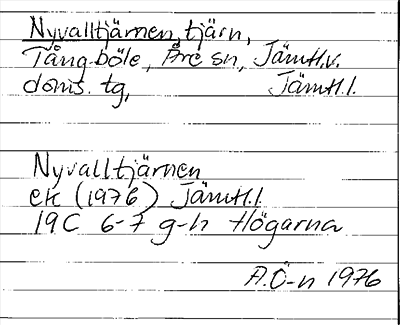 Nyvalltjärnen, tjärn,
Tångböle, Åre sn, Jämtl.v.
doms. tg, Jämtl.l.
Nyvalltjärnen
ek (1976) Jämtl.l
19C 6-7 g-h Högarna
A.Ö-n 1976